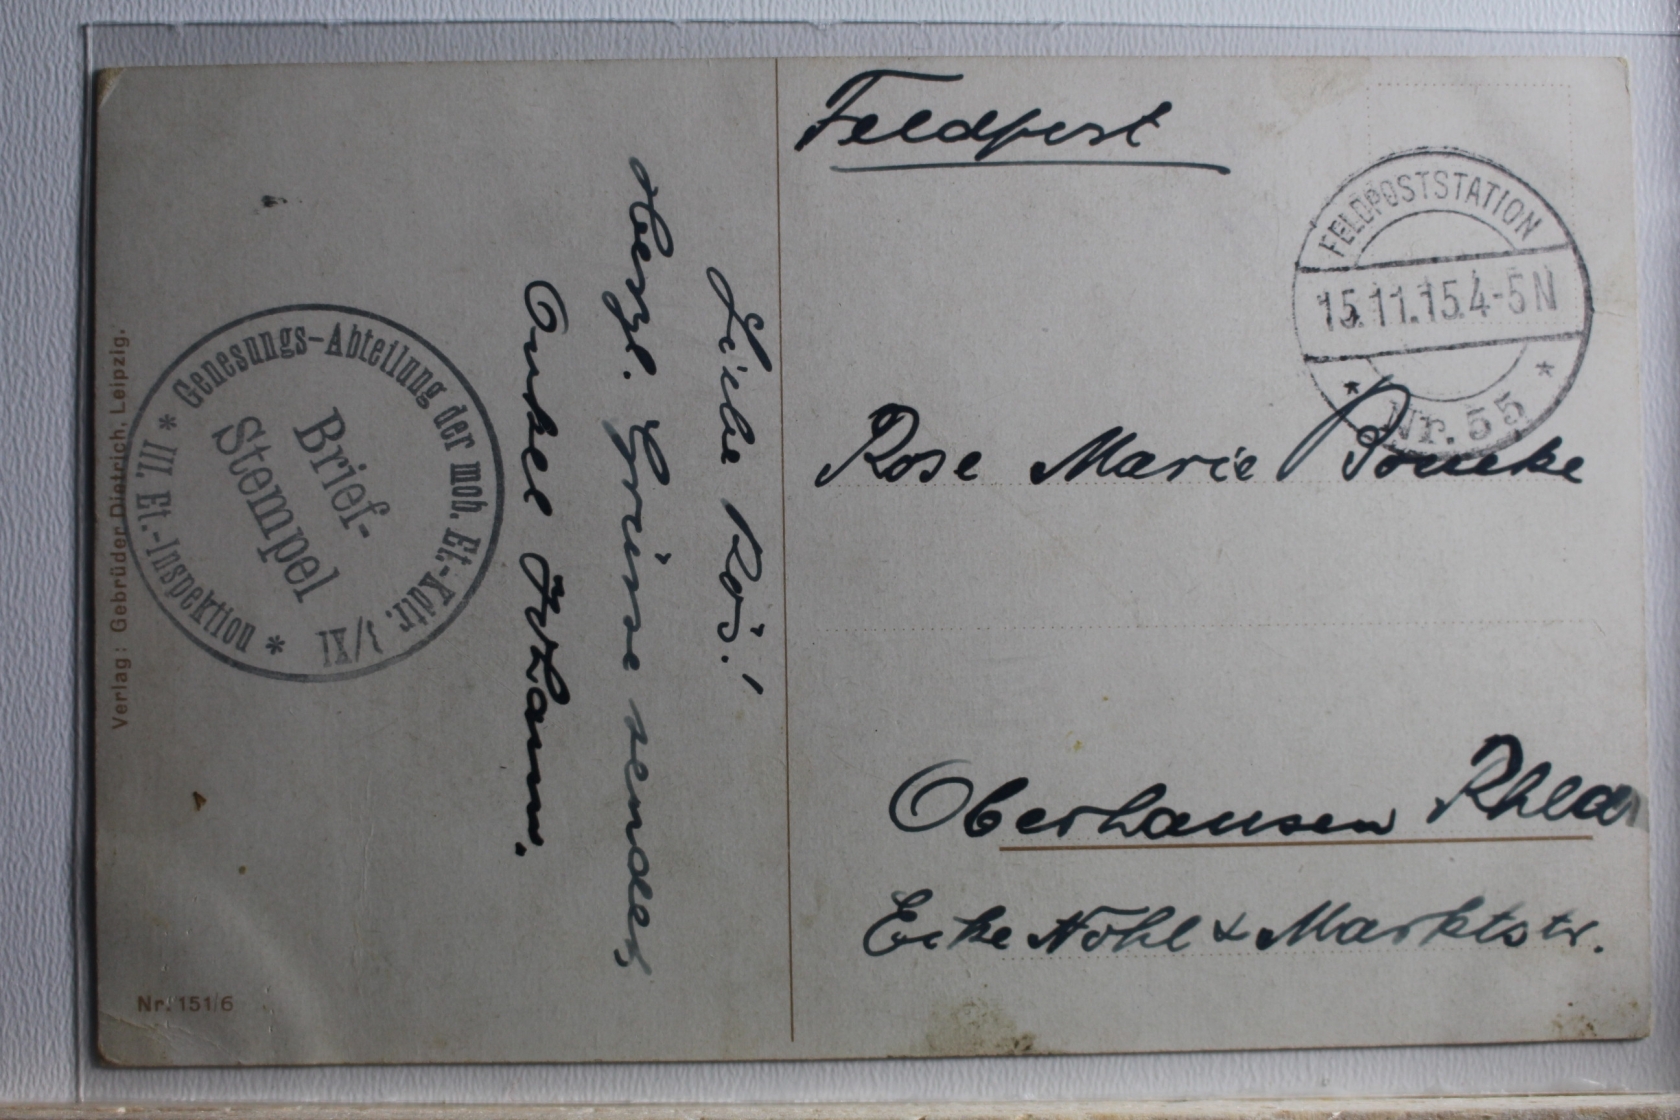 Feldpost
FELDPOSTSTATION
15.11.15.4-5N
* Nr. 55 *
Rose Marie
Oberhausen Rhld
Ecke Nohl & Marktstr.
Liebe Ros!
herzl. Grüsse sendet
Onkel
Genesungs-Abteilung der mob. Et.-Kdtr. 1/XI
* III. Et.-Inspektion *
Brief-
Stempel
Verlag: Gebrüder Dietrich, Leipzig.
Nr. 151/6